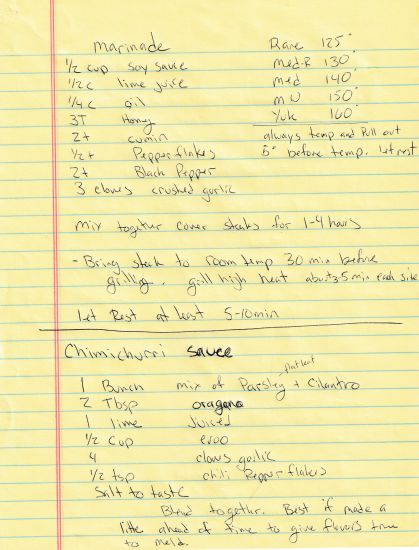 Marinade
1/2 cup soy sauce
1/2 c lime juice
1/4 c oil
3T Honey
2t cumin
1/2 t Pepper flakes
2t Black Pepper
3 cloves crushed garlic
Rare 125°
Med-R 130°
med 140°
MW 150°
Yuk 160°
always temp and Pull out
5° before temp. Let rest
Mix together cover steaks for 1-4 hours
- Bring steak to room temp 30 min before
grilling. grill high heat about 3-5 min each side
Let Rest at least 5-10 min
Chimichurri sauce
flat leaf
1 Bunch mix of Parsley + Cilantro
2 Tbsp oragano
1 lime Juiced
1/2 cup evoo
4 claws garlic
1/2 tsp chili Pepper flakes
Salt to taste
Blend together. Best if made a
little ahead of time to give flavors time
to meld.